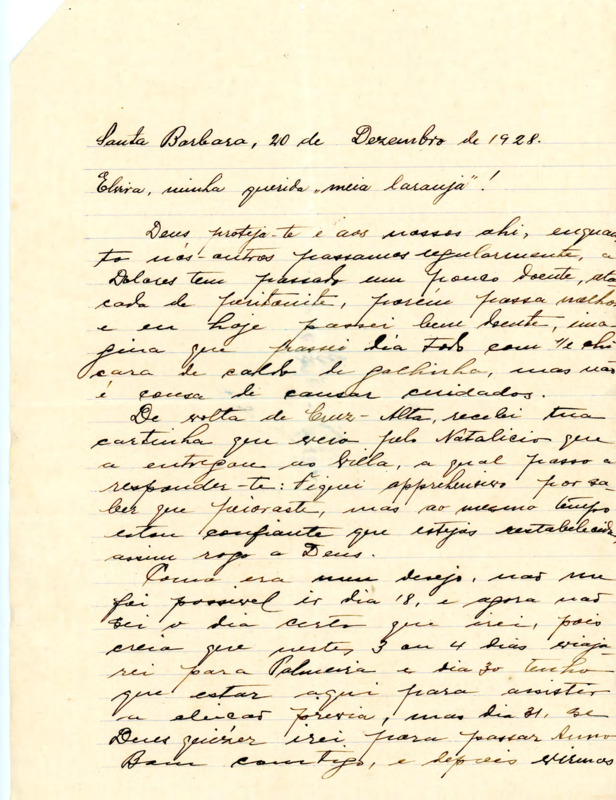 Santa Barbara, 20 de Dezembro de 1928.
Elvira, minha querida „meia laranja"!
Deus proteja-te e aos nossos ahi, enquan
to nós-outros passamos regularmente, a
Dolores tem passado um pouco doente, ata
cada de peritonite, porem passa melhor
e eu hoje passei bem doente, ima
gina que passei dia todo com ½ chi
cara de caldo de galhinha, mas não
é cousa de causar cuidados.
De volta de Cruz-Alta, recebi tua
cartinha que veio pelo Natalicio que
a entregou ao Villa, a qual passo a
responder-te: Fiquei apprehensivo por sa
ber que peioraste, mas ao mesmo tempo
estou confiante que estejas restabelecida
assim rogo a Deus.
Como era meu desejo, não me
foi possivel ir dia 18, e agora não
sei o dia certo que irei, pois
creio que nestes 3 ou 4 dias viaja
rei para Palmeira e dia 30 tenho
que estar aqui para assistir
a eleicão previa, mas dia 31, se
Deus quizer irei para passar Anno
Bom comtigo, e depois virmos